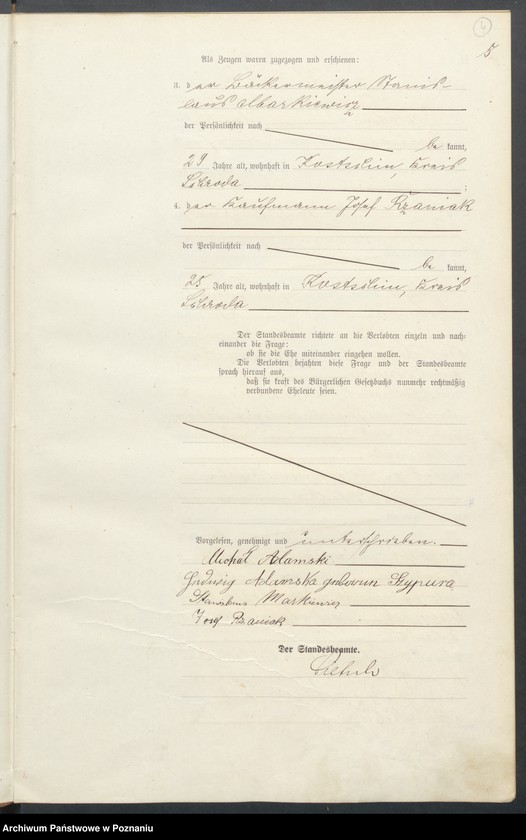 4
5
Als Zeugen waren zugezogen und erschienen:
3. der Bäckermeister Stanis-
laus Markiewicz
der Persönlichkeit nach
be kannt,
29 Jahre alt, wohnhaft in Kostschin, Kreis
Schroda ;
4. der Kaufmann Josef Rzaniak
der Persönlichkeit nach
be kannt,
25 Jahre alt, wohnhaft in Kostschin, Kreis
Schroda
Der Standesbeamte richtete an die Verlobten einzeln und nach-
einander die Frage:
ob sie die Ehe miteinander eingehen wollen.
Die Verlobten bejahten diese Frage und der Standesbeamte
sprach hierauf aus,
daß sie kraft des Bürgerlichen Gesetzbuchs nunmehr rechtmäßig
verbundene Eheleute seien.
Vorgelesen, genehmigt und unterschrieben.
Michał Adamski
Hedwig Adamska geborene Szypura
Stanislaus Markiewicz
Josef Rzaniak
Der Standesbeamte.
Archiwum Państwowe w Poznaniu